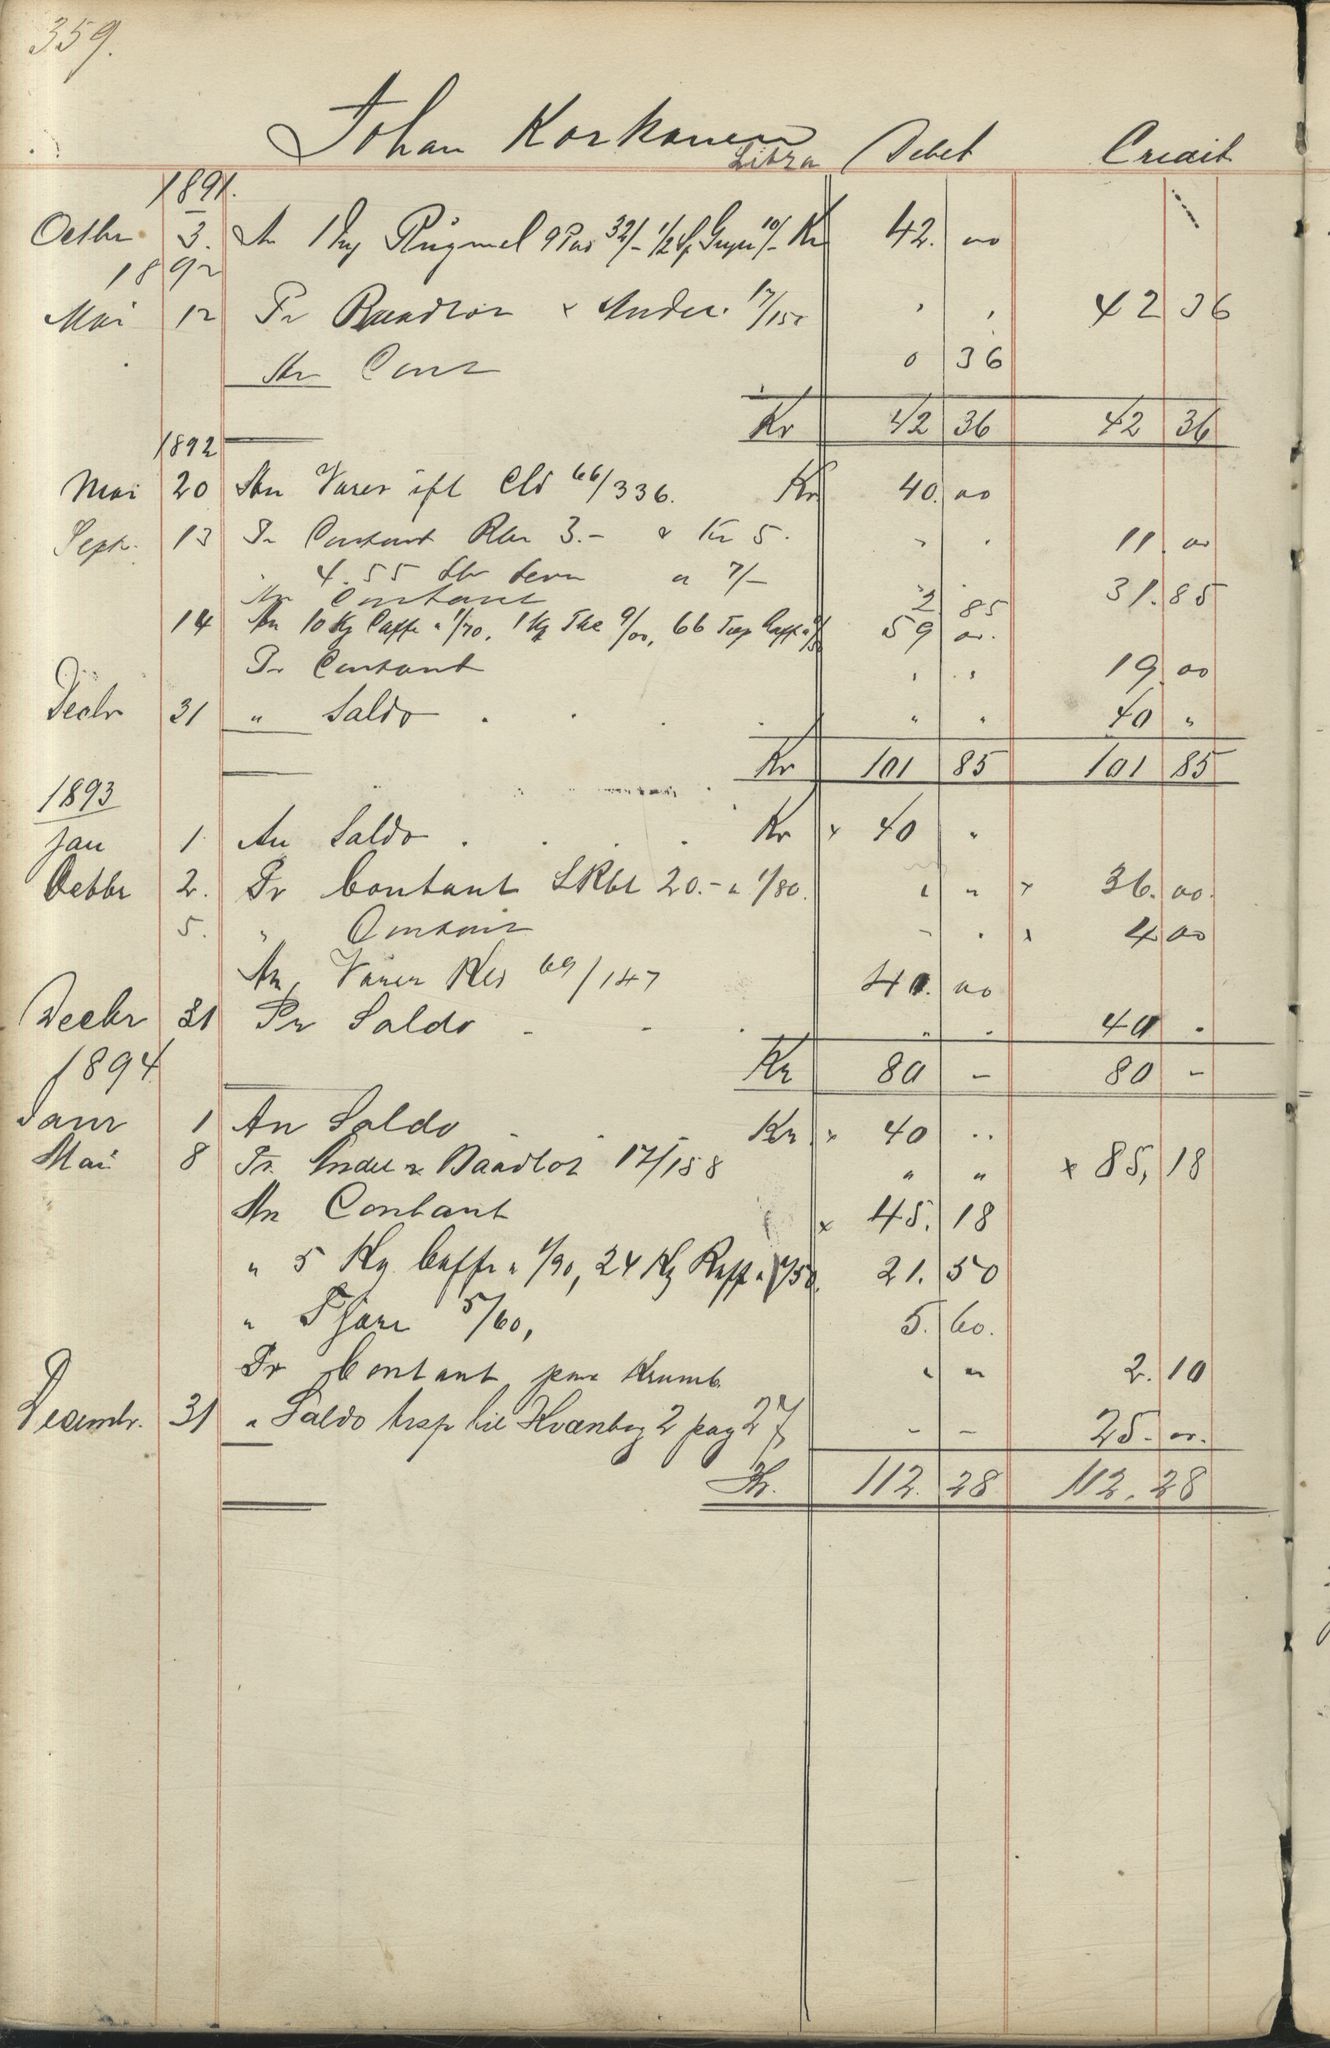 359.
Johan Korkonen
Litra Debet Credit
1891.
Octbr 3. An 1 Rugmel 9 Pud 32/- 1/2 Gryn 10/- Kr 42. 00
1892
Mai 12 Pr Baadlod & Andel 17/152 " " 42 36
An Cont 0 36
Kr 42 36 42 36
1892
Mai 20 An Varer ifl Cld 66/336. Kr 40. 00
Sept. 13 Pr Contant Rbl 3.- & Kr 5. " " 11. 00
" 4.55 a 7/- 31. 85
An Contant 2 85
14 An 10 Kg Caffe a 1/70, 1 Kg The 9/00, 66 Caffe 59 00.
Pr Contant " " 19. 00
Decbr 31 " Saldo . . . . " " 40 "
Kr 101 85 101 85
1893
Jan 1 An Saldo . . . Kr x 40 "
Octbr 2. Pr Contant SRbl 20.- a 1/80. " " x 36. 00.
5. " Contant " " x 4 00
An Varer Kld 69/147 40. 00
Decbr 31 Pr Saldo - - . " " 40 "
1894 Kr 80 - 80 -
Janr 1 An Saldo . . Kr x 40 ..
Mai 8 Pr. Andel & Baadlod 17/158 " " x 85, 18
An Contant x 45. 18
" 5 Kg Caffe a 1/90, 24 Kg Raff a /50. 21. 50
" Tjære 5/60, 5. 60.
Pr Contant pr Krumb. " " 2. 10
Decembr. 31 " Saldo trsp til Hvænbog 2 pag 27 - - 25- 00.
Kr. 112. 28 112. 28